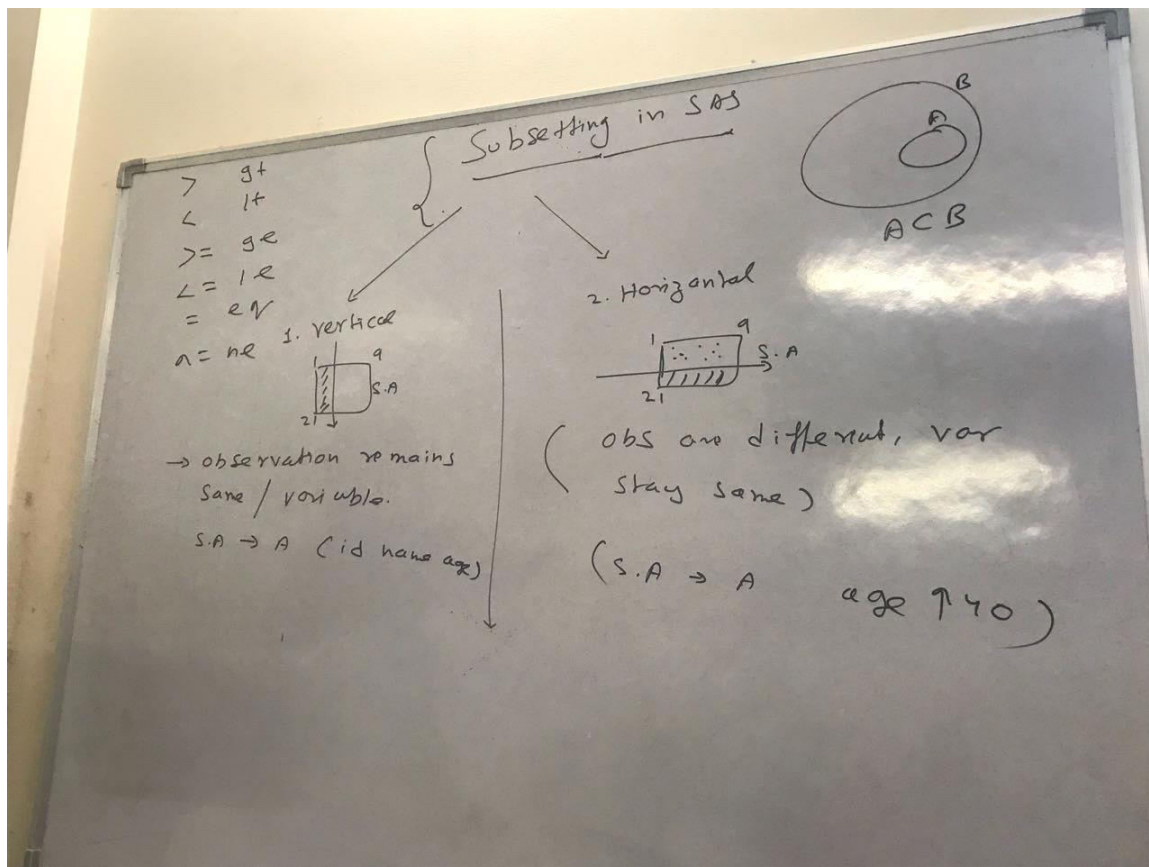 Subsetting in SAS
> gt
< lt
>= ge
<= le
= eq
n= ne
B
A
A ⊂ B
1. vertical
1 9
S.A
21
→ observation remains
same / variable.
S.A → A (id name age)
2. Horizantal
1 9
S.A
21
( obs are different, var
stay same )
(S.A → A age ↑ 40 )